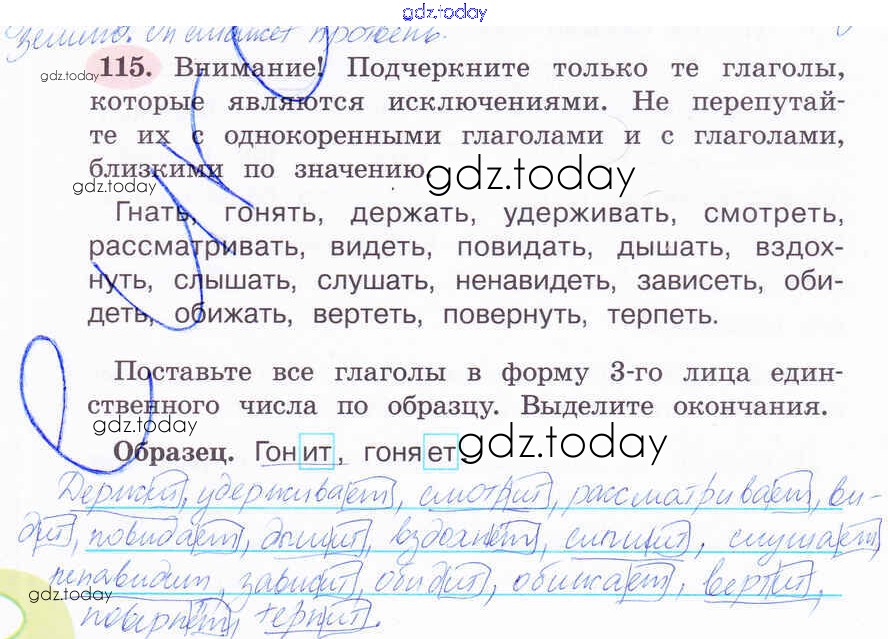 gdz.today
землю. Он сможет
gdz.today
115. Внимание! Подчеркните только те глаголы,
которые являются исключениями. Не перепутай-
те их с однокоренными глаголами и с глаголами,
близкими по значению.
gdz.today
gdz.today
Гнать, гонять, держать, удерживать, смотреть,
рассматривать, видеть, повидать, дышать, вздох-
нуть, слышать, слушать, ненавидеть, зависеть, оби-
деть, обижать, вертеть, повернуть, терпеть.
Поставьте все глаголы в форму 3-го лица един-
ственного числа по образцу. Выделите окончания.
gdz.today
Образец. Гонит, гоняет
gdz.today
Держит, удерживает, смотрит, рассматривает, ви-
дит, повидает, дышит, вздохнёт, слышит, слушает
ненавидит, зависит, обидит, обижает, вертит,
gdz.today
повернёт, терпит.